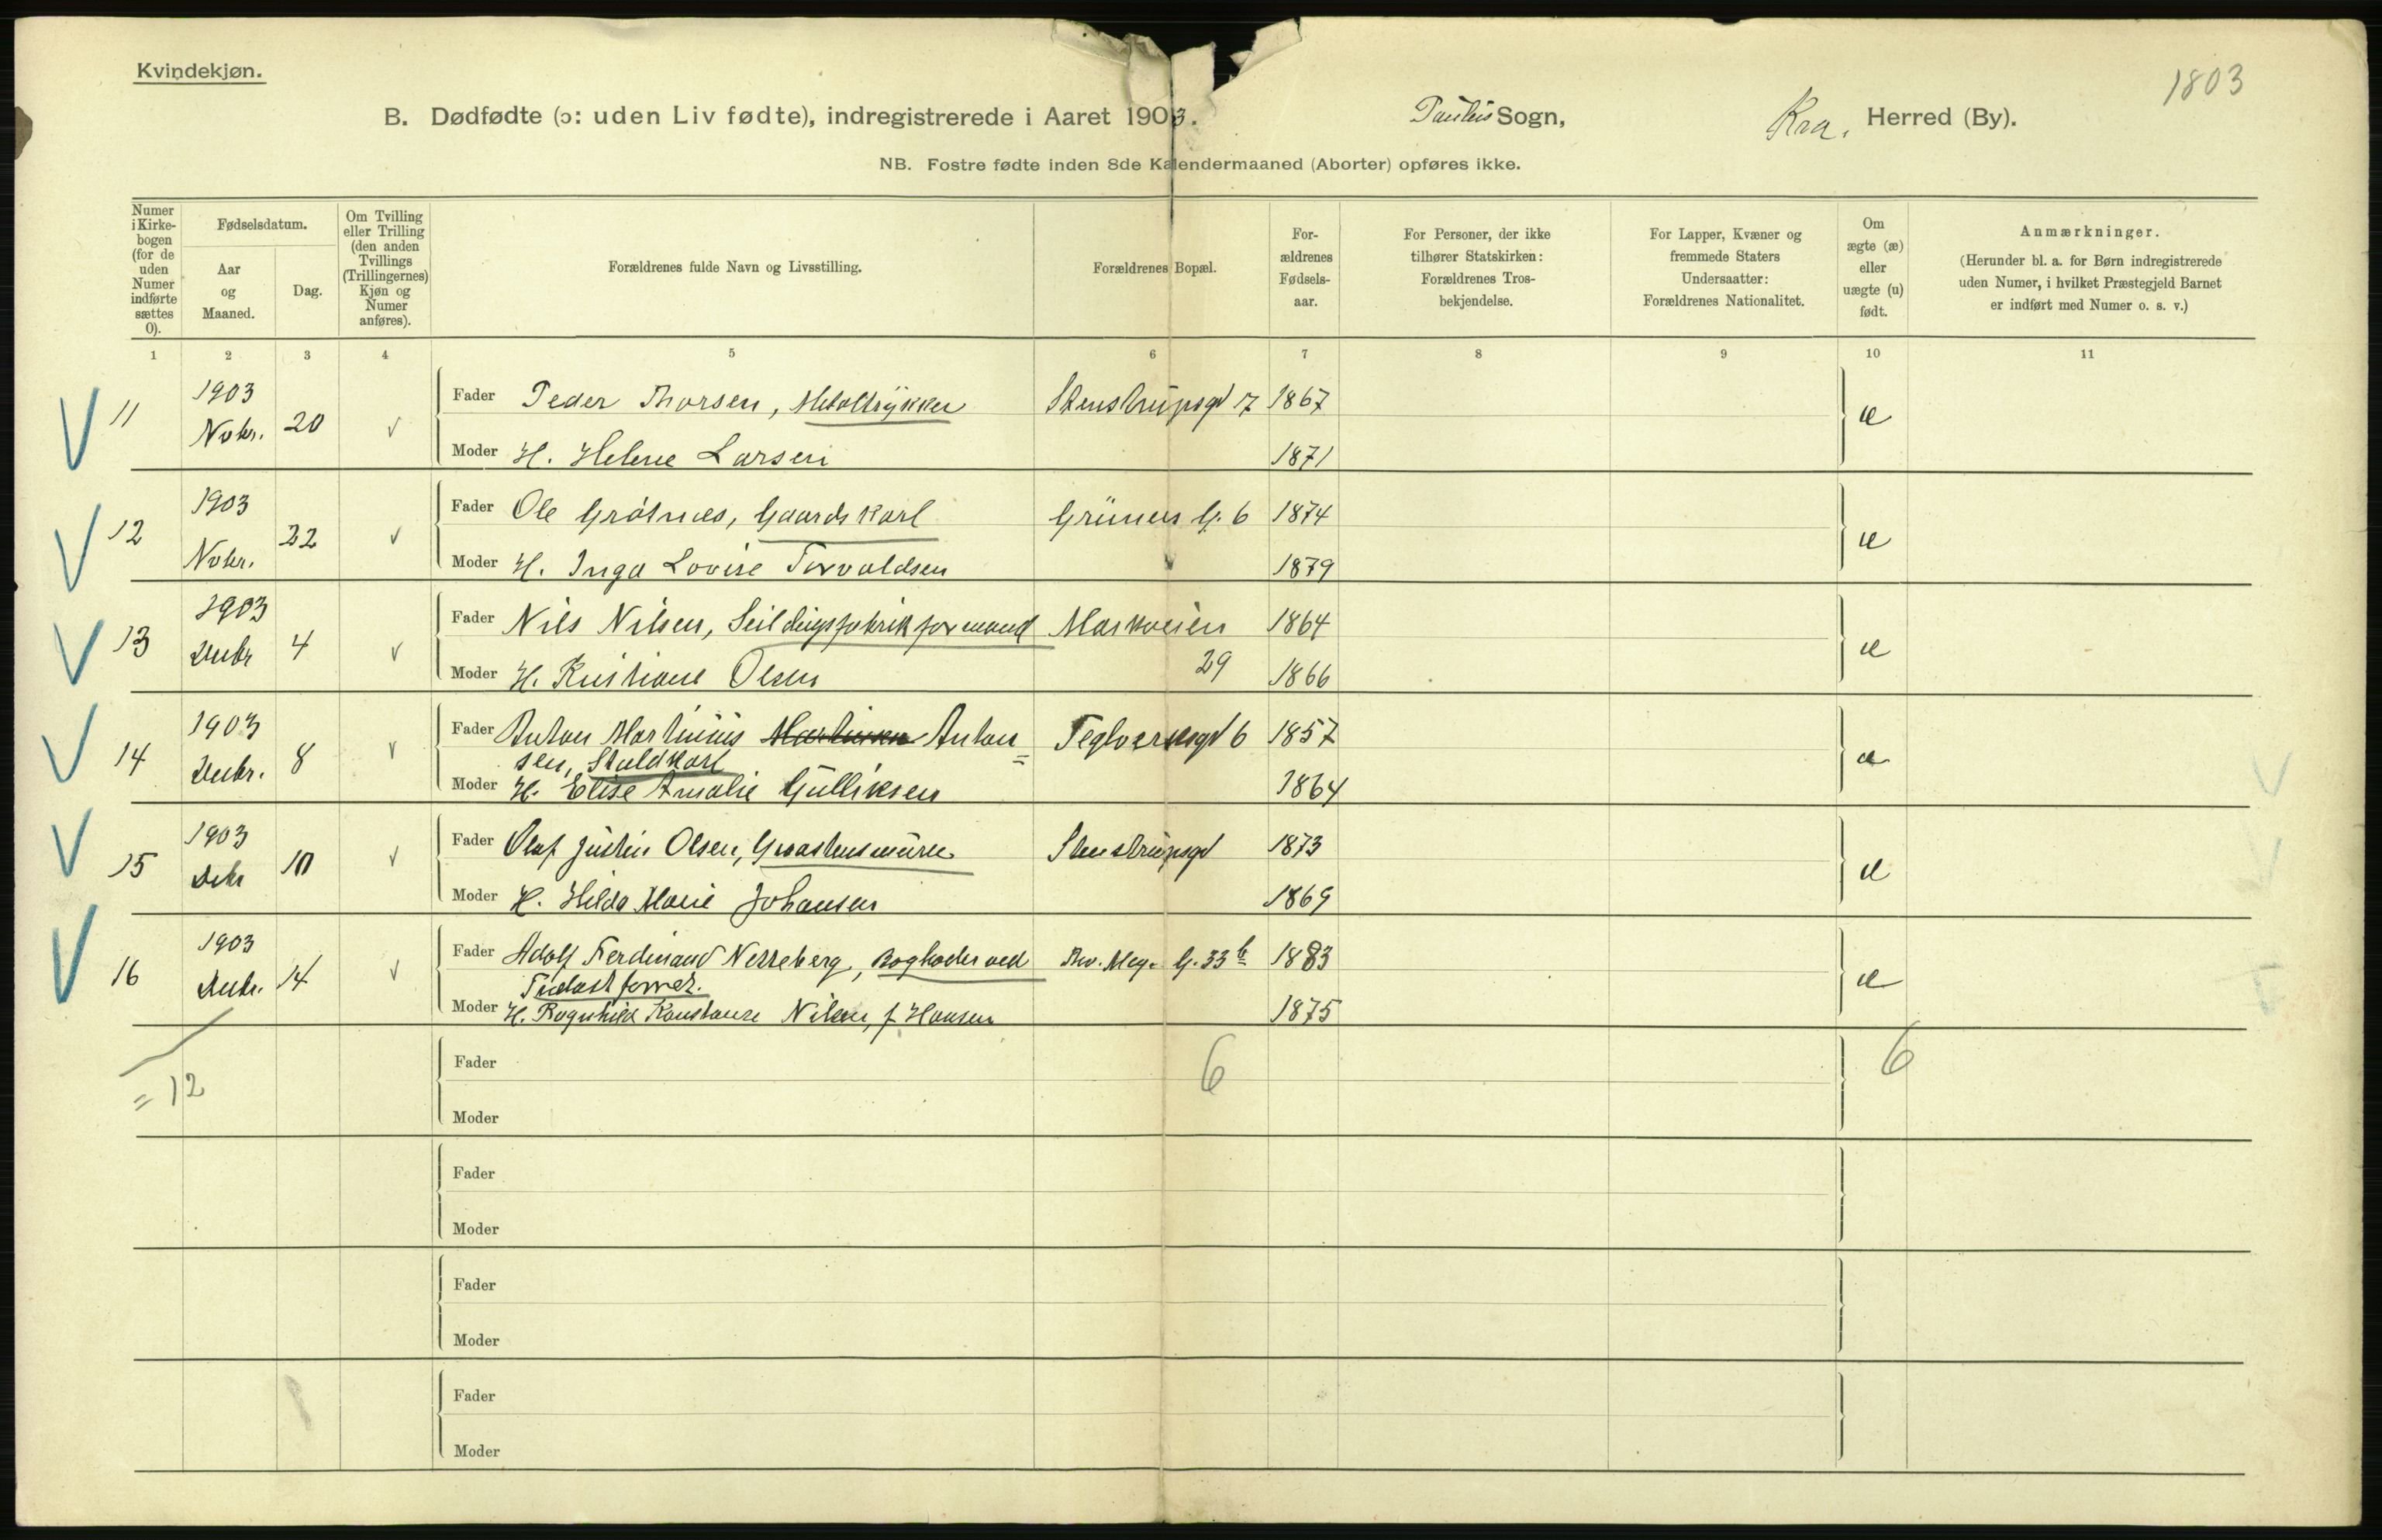 Kvindekjøn.
1803
B. Dødfødte (ɔ: uden Liv fødte), indregistrerede i Aaret 1903. Paulus Sogn, Kra. Herred (By).
NB. Fostre fødte inden 8de Kalendermaaned (Aborter) opføres ikke.
Numer i Kirkebogen (for de uden Numer indførte sættes 0).
Fødselsdatum.
Aar og Maaned.
Dag.
Om Tvilling eller Trilling (den anden Tvillings (Trillingernes) Kjøn og Numer anføres).
Forældrenes fulde Navn og Livsstilling.
Forældrenes Bopæl.
For-ældrenes Fødsels-aar.
For Personer, der ikke tilhører Statskirken: Forældrenes Tros-bekjendelse.
For Lapper, Kvæner og fremmede Staters Undersaatter: Forældrenes Nationalitet.
Om ægte (æ) eller uægte (u) født.
Anmærkninger.
(Herunder bl. a. for Børn indregistrerede uden Numer, i hvilket Præstegjeld Barnet er indført med Numer o. s. v.)
1 2 3 4 5 6 7 8 9 10 11
11 1903 Nobr. 20 √ Fader Peder Thorsen, Metaltrykker Stenstrupsgd 17 1867 æ
Moder H. Helene Larsen 1871
12 1903 Nobr. 22 √ Fader Ole Grôtnæs, Gaardskarl Grüners G. 6 1874 æ
Moder H. Inga Lovise Torvaldsen 1879
13 1903 Debr 4 √ Fader Nils Nilsen, Seildugsfabrikformand Markveien 1864 æ
Moder H. Kristiane Olsen 29 1866
14 1903 Debr. 8 √ Fader Anton Martinius Martinsen Anton= Teglverksgd 6 1857 æ
sen, Staldkarl
Moder H. Elise Amalie Gulliksen 1864
15 1903 Debr 10 √ Fader Olaf Justin Olsen, Graastensmurer Stenstrupsgd 1873 æ
Moder H. Hilda Marie Johansen 1869
16 1903 Debr. 14 √ Fader Adolf Ferdinand Nesseberg, Bogholder ved Thv. Mey. G. 33b 1883 æ
Moder H. Ragnhild Konstanse Nilsen, f. Hansen 1875
= 12
Fader 6 6
Moder
Fader
Moder
Fader
Moder
Fader
Moder